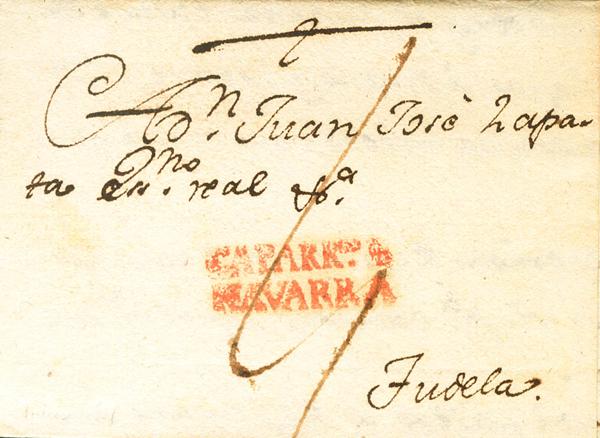 A Dn. Juan José Zapa-
ta essno. real &a.
CAPARRo.
NAVARRA
Tudela.